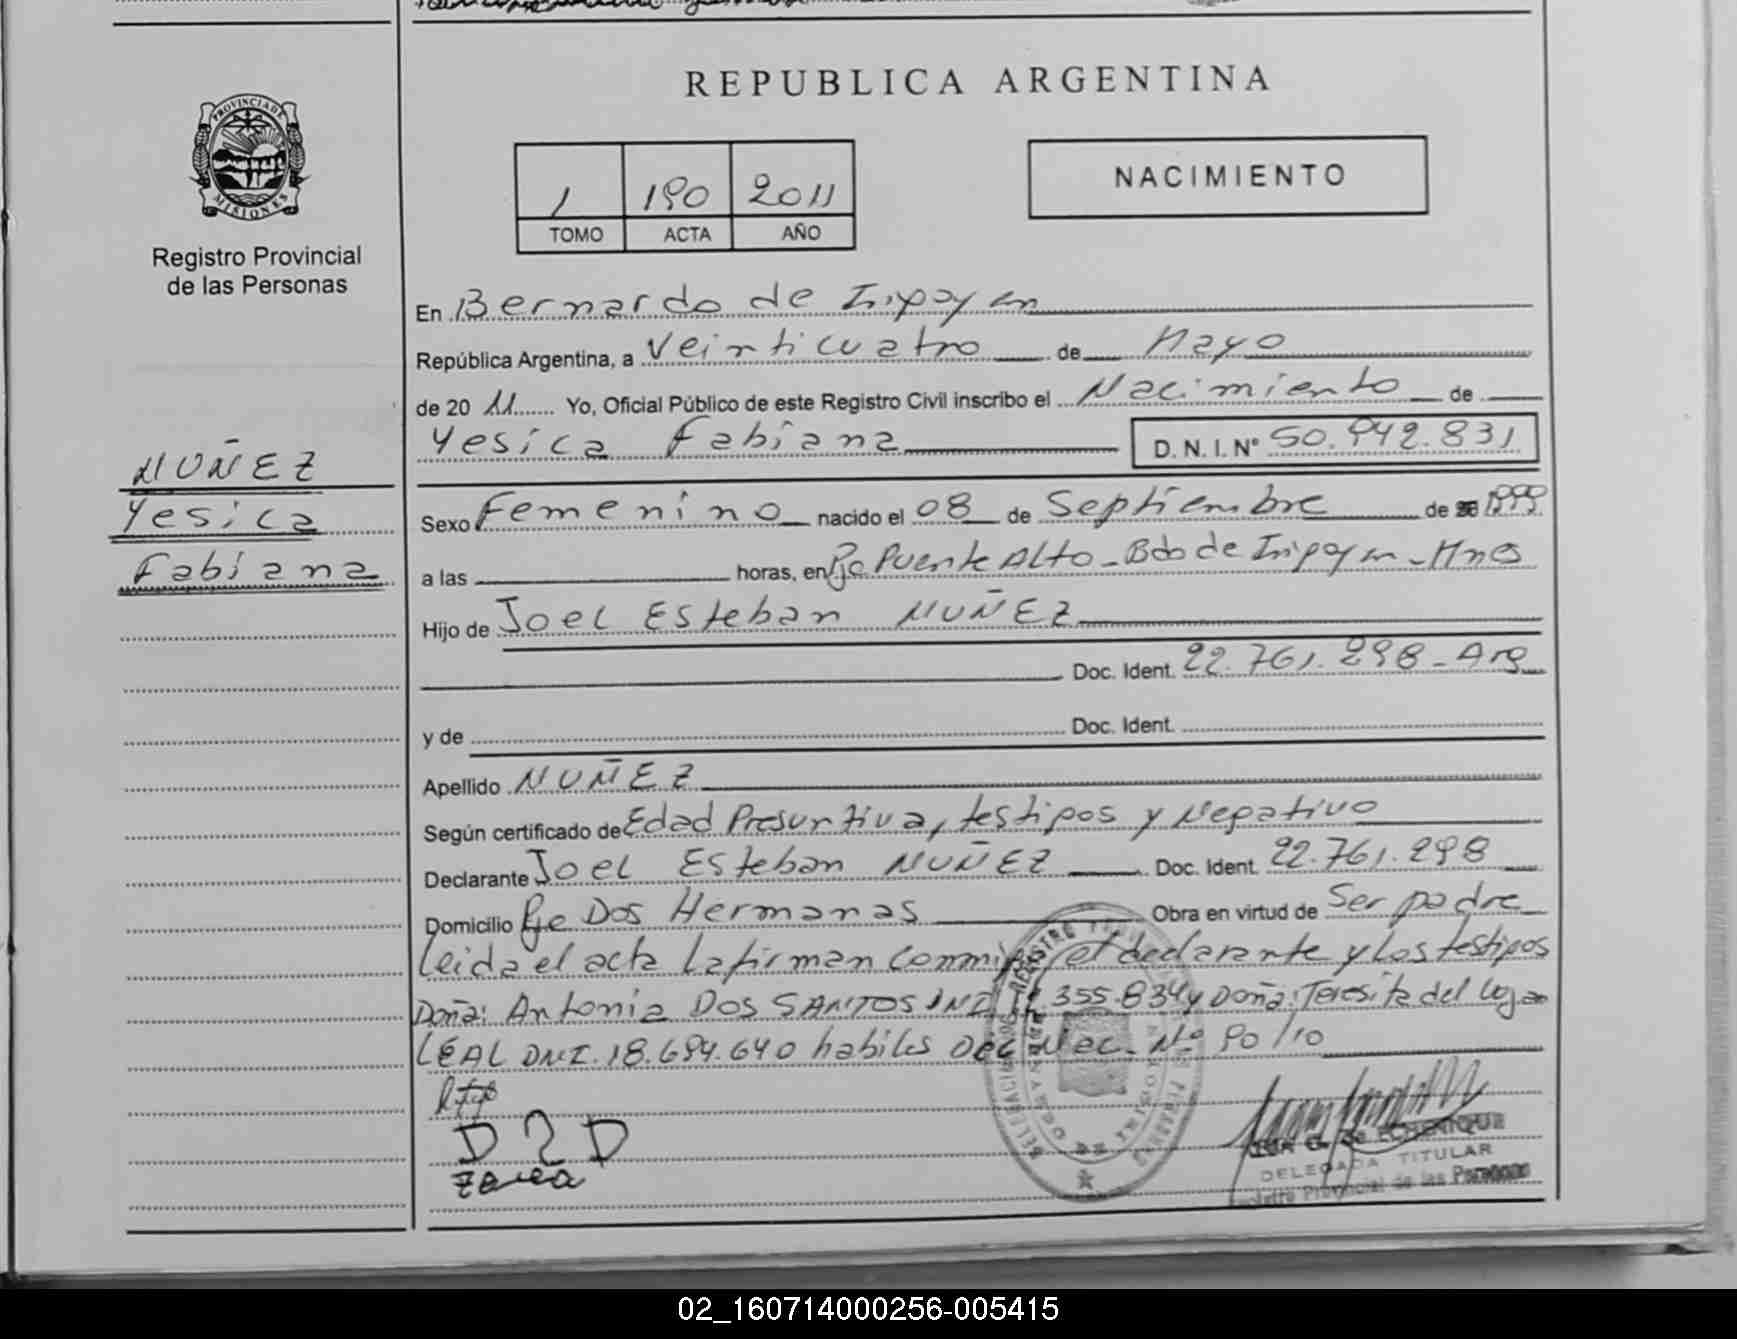 REPUBLICA ARGENTINA
PROVINCIA DE MISIONES
Registro Provincial
de las Personas
1 190 2011
TOMO ACTA AÑO
NACIMIENTO
En Bernardo de Irigoyen
República Argentina, a Veinticuatro de Mayo
de 20 11 Yo, Oficial Público de este Registro Civil inscribo el Nacimiento de
Yesica Fabiana D. N. I. N° 50.942.831
NUÑEZ
Yesica
Fabiana
Sexo Femenino nacido el 08 de Septiembre de 1999
a las horas, en Pje Puente Alto - Bdo de Irigoyen - Mnes
Hijo de Joel Esteban NUÑEZ
Doc. Ident. 22.761.298 - Arg
y de Doc. Ident.
Apellido NUÑEZ
Según certificado de Edad Presuntiva, testigos y Negativo
Declarante Joel Esteban NUÑEZ Doc. Ident. 22.761.298
Domicilio Pje Dos Hermanas Obra en virtud de Ser padre
Leida el acta la firman conmigo el declarante y los testigos
Doña: Antonia DOS SANTOS DNI 355.834 y Doña: Teresita del
LEAL DNI. 18.694.640 habiles Dec. Nac. N° 90/10
DE ECHENIQUE
DELEGADA TITULAR
Registro Provincial de las Personas
02_160714000256-005415